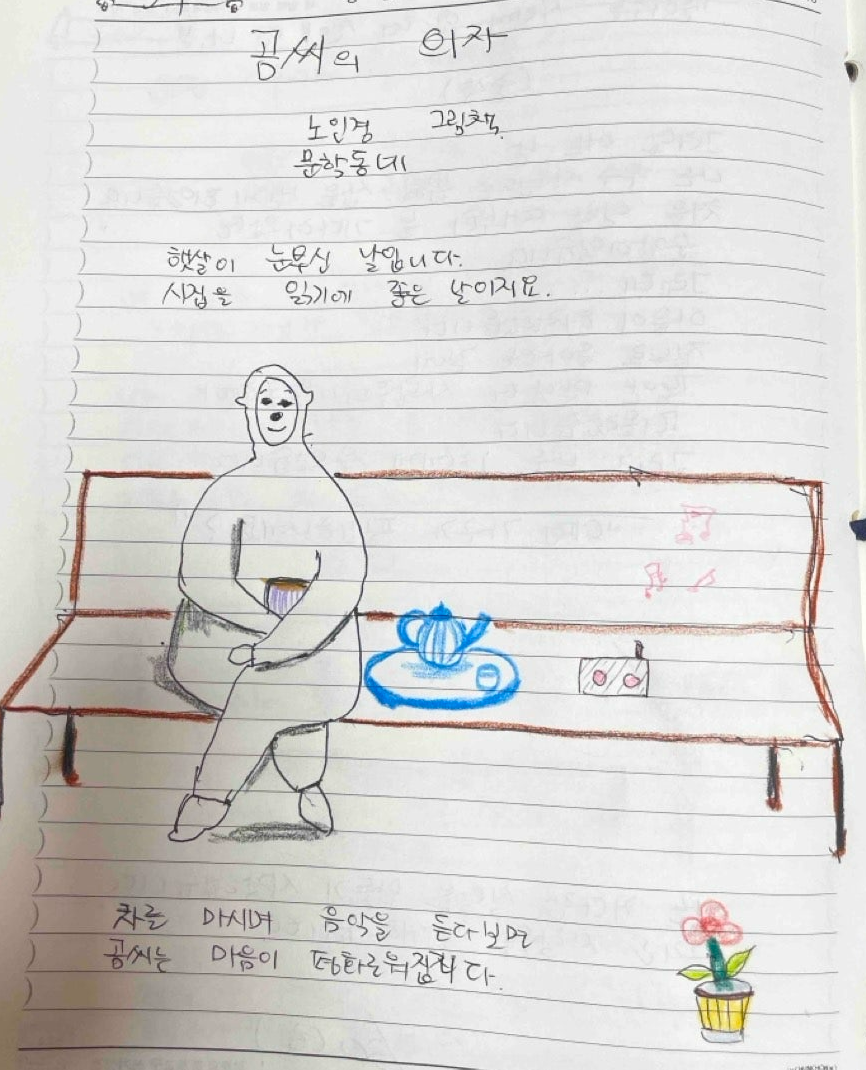 곰씨의 의자
노인경 그림책.
문학동네
햇살이 눈부신 날입니다.
시집을 읽기에 좋은 날이지요.
차를 마시며 음악을 듣다보면
곰씨는 마음이 평화로워집니다.